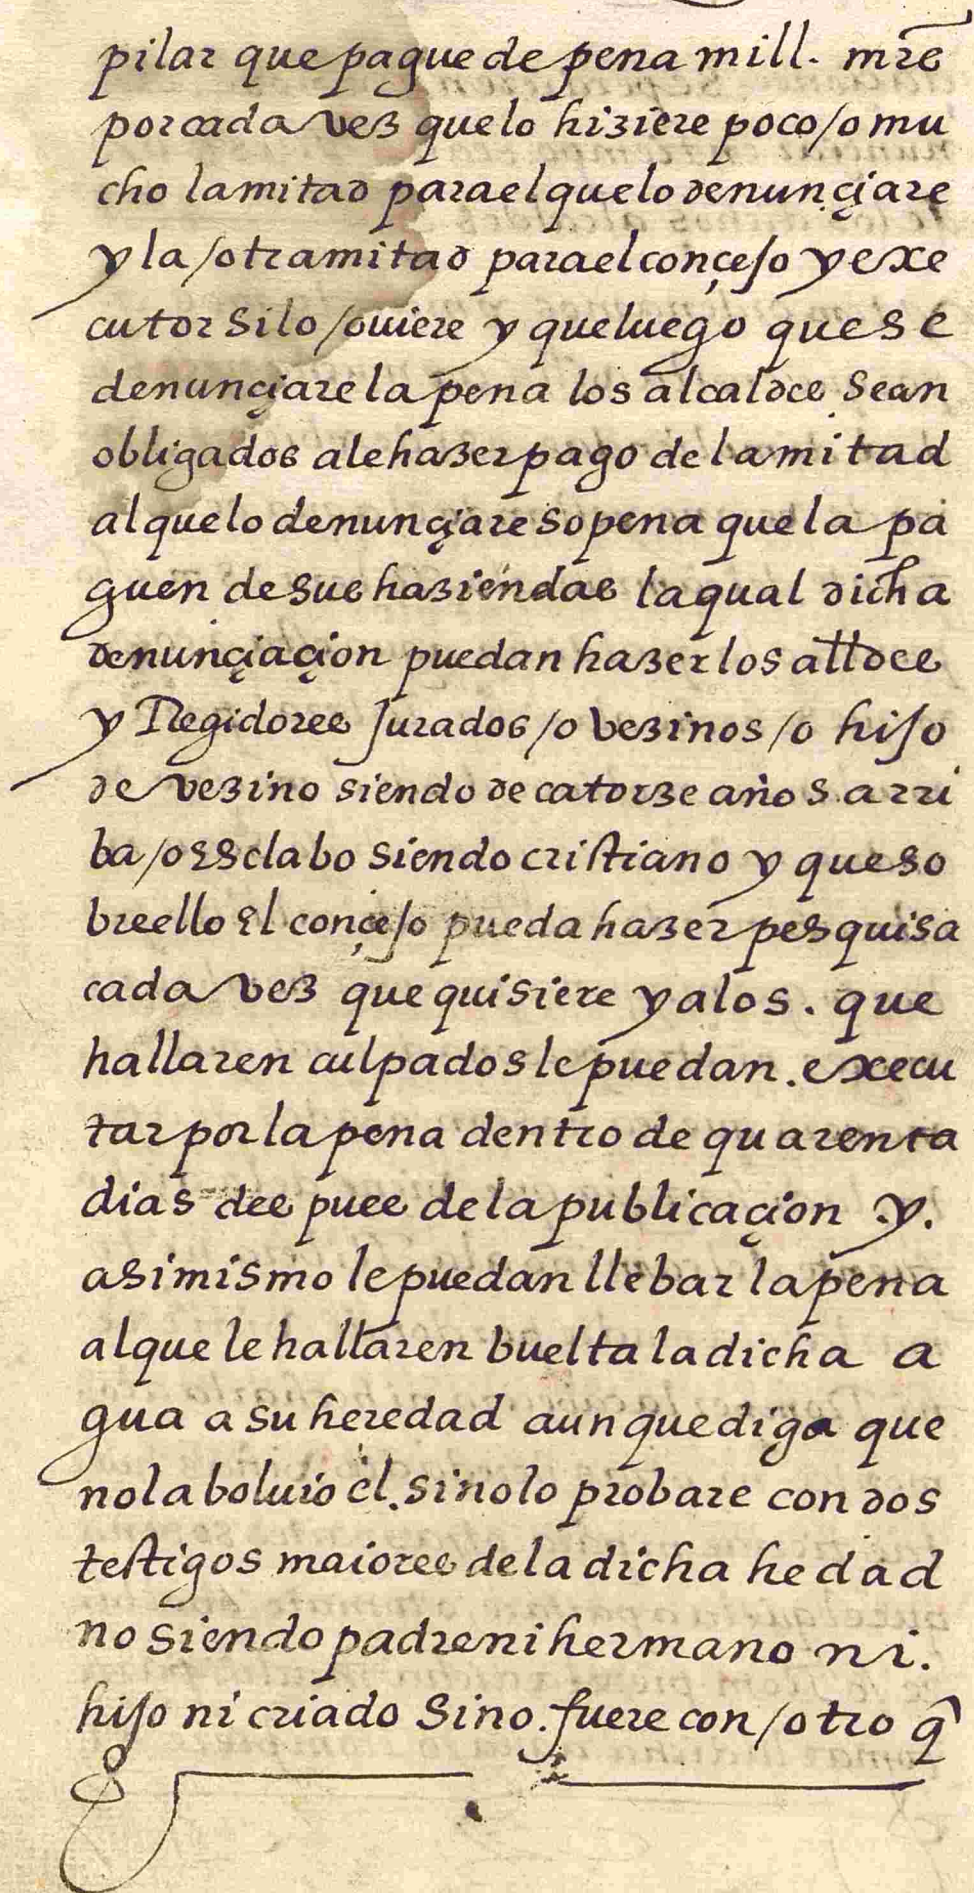 pilar que pague de pena mill. mrs
por cada vez que lo hiziere poco /o mu
cho la mitad para el que lo denunçiare
y la /otra mitad para el conçejo y exe
cutor si lo /ouiere y que luego que se
denunçiare la pena los alcaldes sean
obligados a le hazer pago de la mitad
al que lo denunçiare so pena que la pa
guen de sus haziendas la qual dicha
denunçiaçion puedan hazer los alldes
y Regidores Jurados /o vezinos /o hijo
de vezino siendo de catorze años arri
ba /o esclabo siendo cristiano y que so
bre ello El conçejo pueda hazer pesquisa
cada vez que quisiere y a los . que
hallaren culpados le puedan . execu
tar por la pena dentro de quarenta
dias despues de la publicaçion .y.
asi mismo le puedan llebar la pena
al que le hallaren buelta la dicha a
gua a su heredad aunque diga que
no la boluio el . si no lo probare con dos
testigos maiores de la dicha hedad
no siendo padre ni hermano ni .
hijo ni criado Sino . fuere con /otro q̃